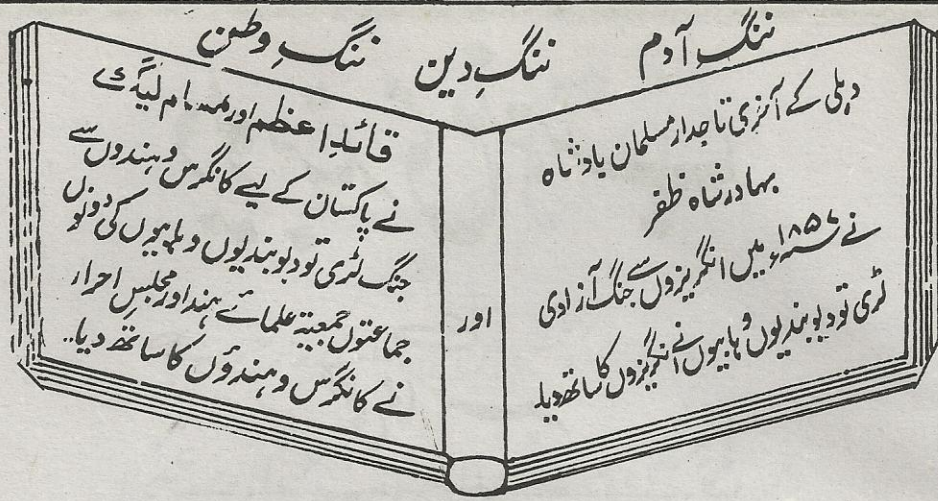 ننگِ آدم ننگِ دین ننگِ وطن
دہلی کے آخری تاجدار مسلمان بادشاہ
بہادر شاہ ظفر
نے ۱۸۵۷ء میں انگریزوں سے جنگ آزادی
لڑی تو دیوبندیوں وہابیوں نے انگریزوں کا ساتھ دیا۔
اور
قائداعظم اور مسلم لیگ
نے پاکستان کے لیے کانگرس و ہندوں سے
جنگ لڑی تو دیوبندیوں وہابیوں کی دونوں
جماعتوں جمعیۃ علمائے ہند اور مجلس احرار
نے کانگرس و ہندوؤں کا ساتھ دیا۔